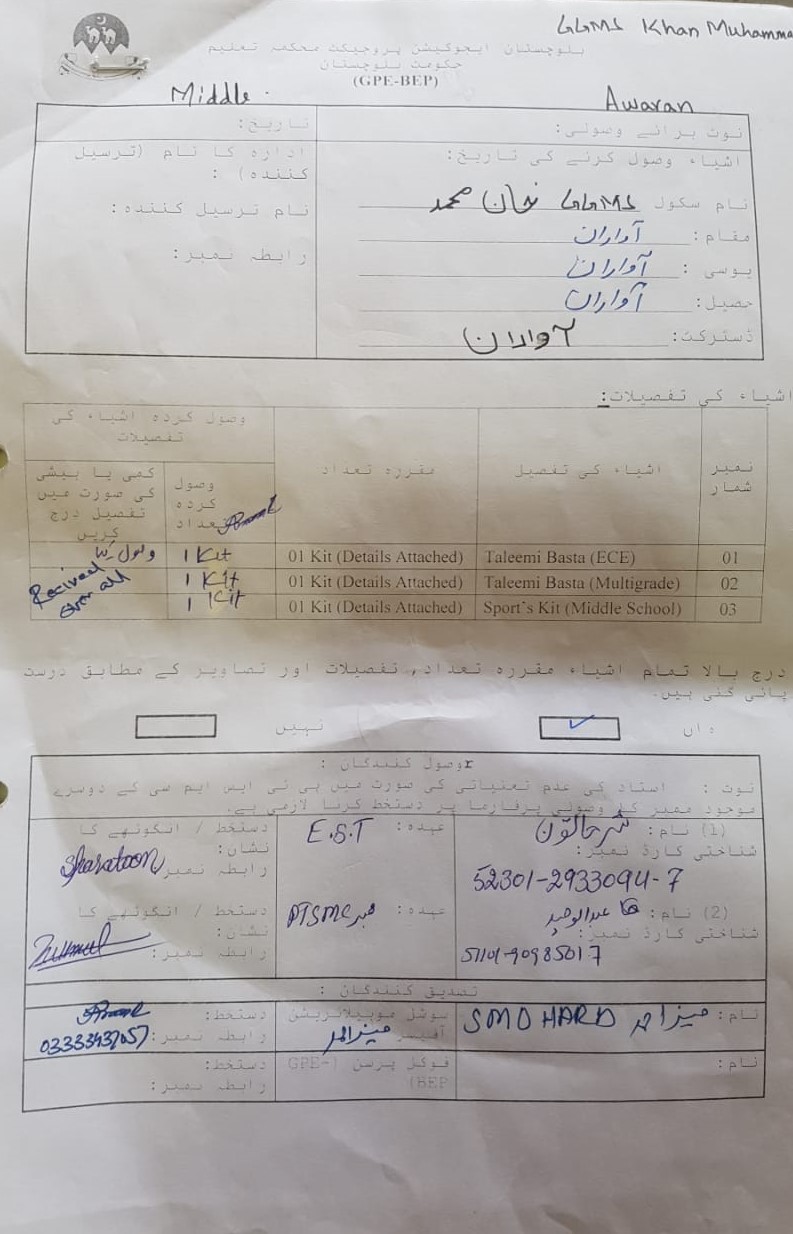 GGMS Khan Muhamma
بلوچستان ایجوکیشن پروجیکٹ محکمہ تعلیم
حکومت بلوچستان
(GPE-BEP)
Middle
Awaran
نوٹ برائے وصولی:
تاریخ:
اشیاء وصول کرنے کی تاریخ:
ادارہ کا نام (ترسیل کنندہ) :
نام سکول GGMS خان محمد
نام ترسیل کنندہ:
مقام: آواران
رابطہ نمبر:
یوسی : آواران
حصیل: آواران
ڈسٹرکٹ: آواران
اشیاء کی تفصیلات:
نمبر شمار
اشیاء کی تفصیل
مقررہ تعداد
وصول کردہ اشیاء کی تفصیلات
وصول کردہ تعداد
کمی یا بیشی کی صورت میں تفصیل درج کریں
01 Taleemi Basta (ECE) 01 Kit (Details Attached) 1 Kit وصول کیا
02 Taleemi Basta (Multigrade) 01 Kit (Details Attached) 1 Kit Recived
03 Sport's Kit (Middle School) 01 Kit (Details Attached) 1 Kit
درج بالا تمام اشیاء مقررہ تعداد, تفصیلات اور تصاویر کے مطابق درست
پائی گئی ہیں.
ہاں ✓
نہیں
rوصول کنندگان :
نوٹ : استاد کی عدم تعیناتی کی صورت میں پی ٹی ایس ایم سی کے دوسرے
موجود ممبر کا وصولی پرفارما پر دستخط کرنا لازمی ہے.
(1) نام:
عہدہ: E.S.T
دستخط / انگوٹھے کا نشان:
شناختی کارڈ نمبر:
52301-2933094-7
رابطہ نمبر:
(2) نام: عبدالوحید
عہدہ: ممبر PTSMC
دستخط / انگوٹھے کا نشان:
شناختی کارڈ نمبر:
رابطہ نمبر:
تصدیق کنندگان :
نام: SMO HARD
سوشل موبیلائزیشن آفیسر
دستخط:
رابطہ نمبر:
نام:
فوکل پرسن (GPE-BEP)
دستخط:
رابطہ نمبر: